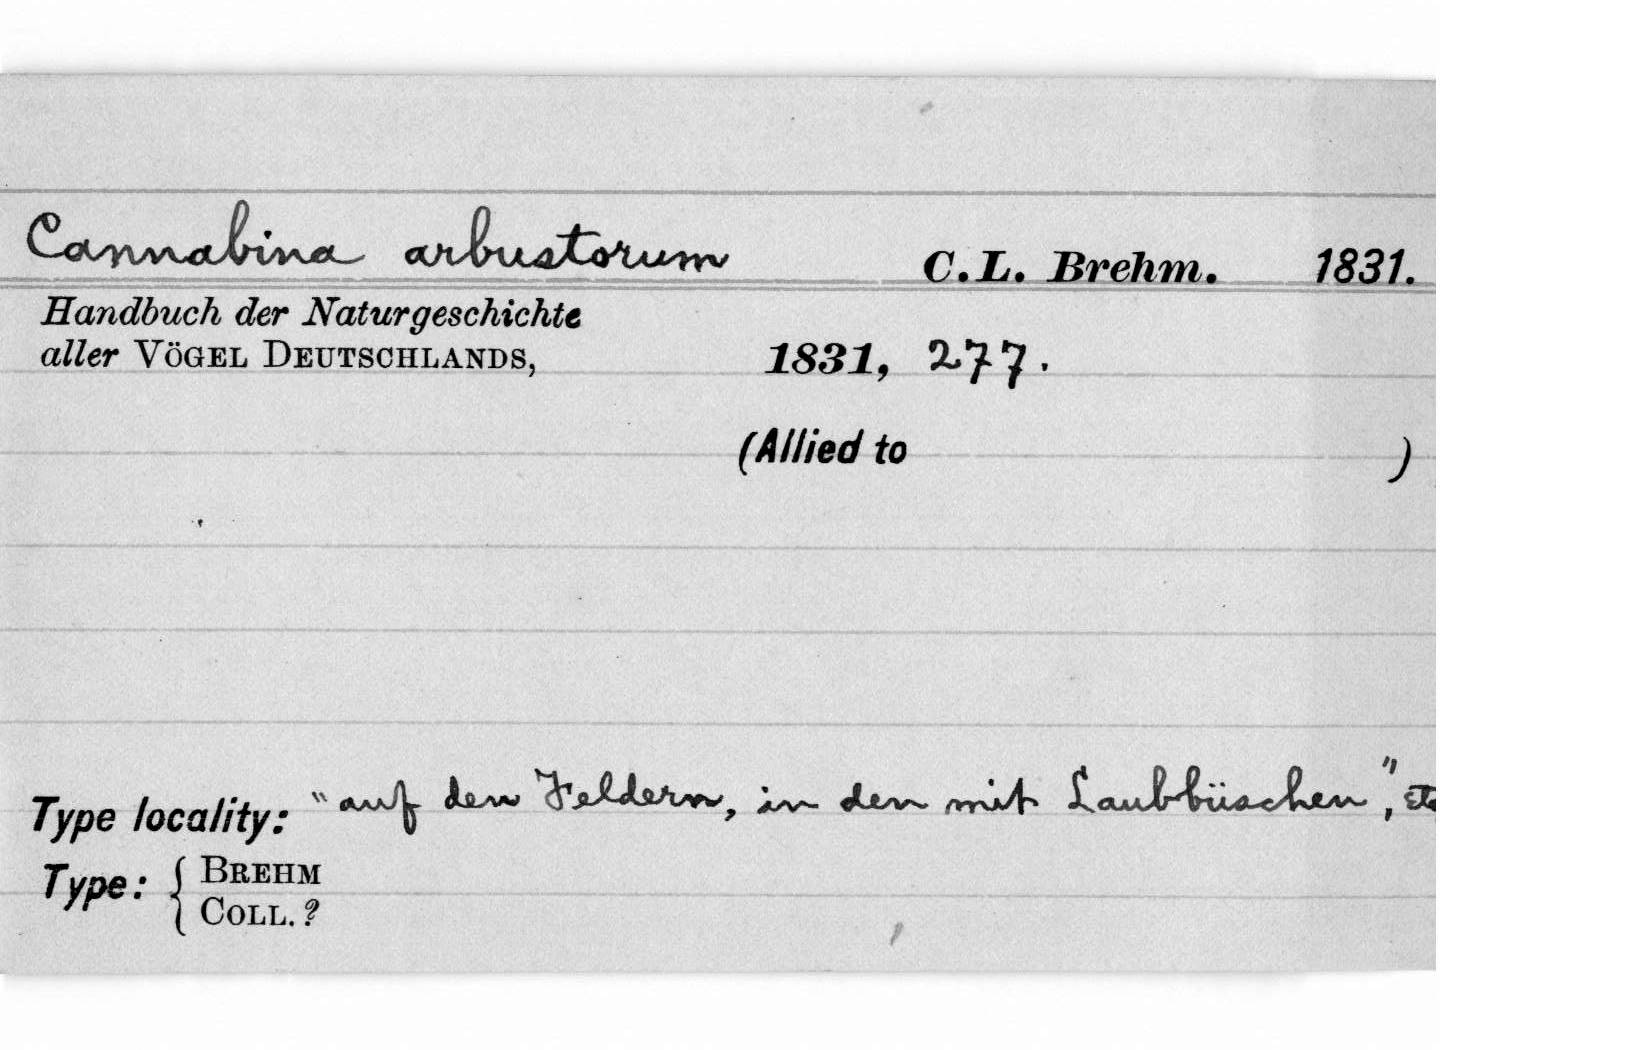 Cannabina arbustorum C. L. Brehm. 1831.
Handbuch der Naturgeschichte
aller VÖGEL DEUTSCHLANDS, 1831, 277.
(Allied to )
Type locality: "auf den Feldern, in den mit Laubbüschen", etc
Type: { BREHM
COLL. ?